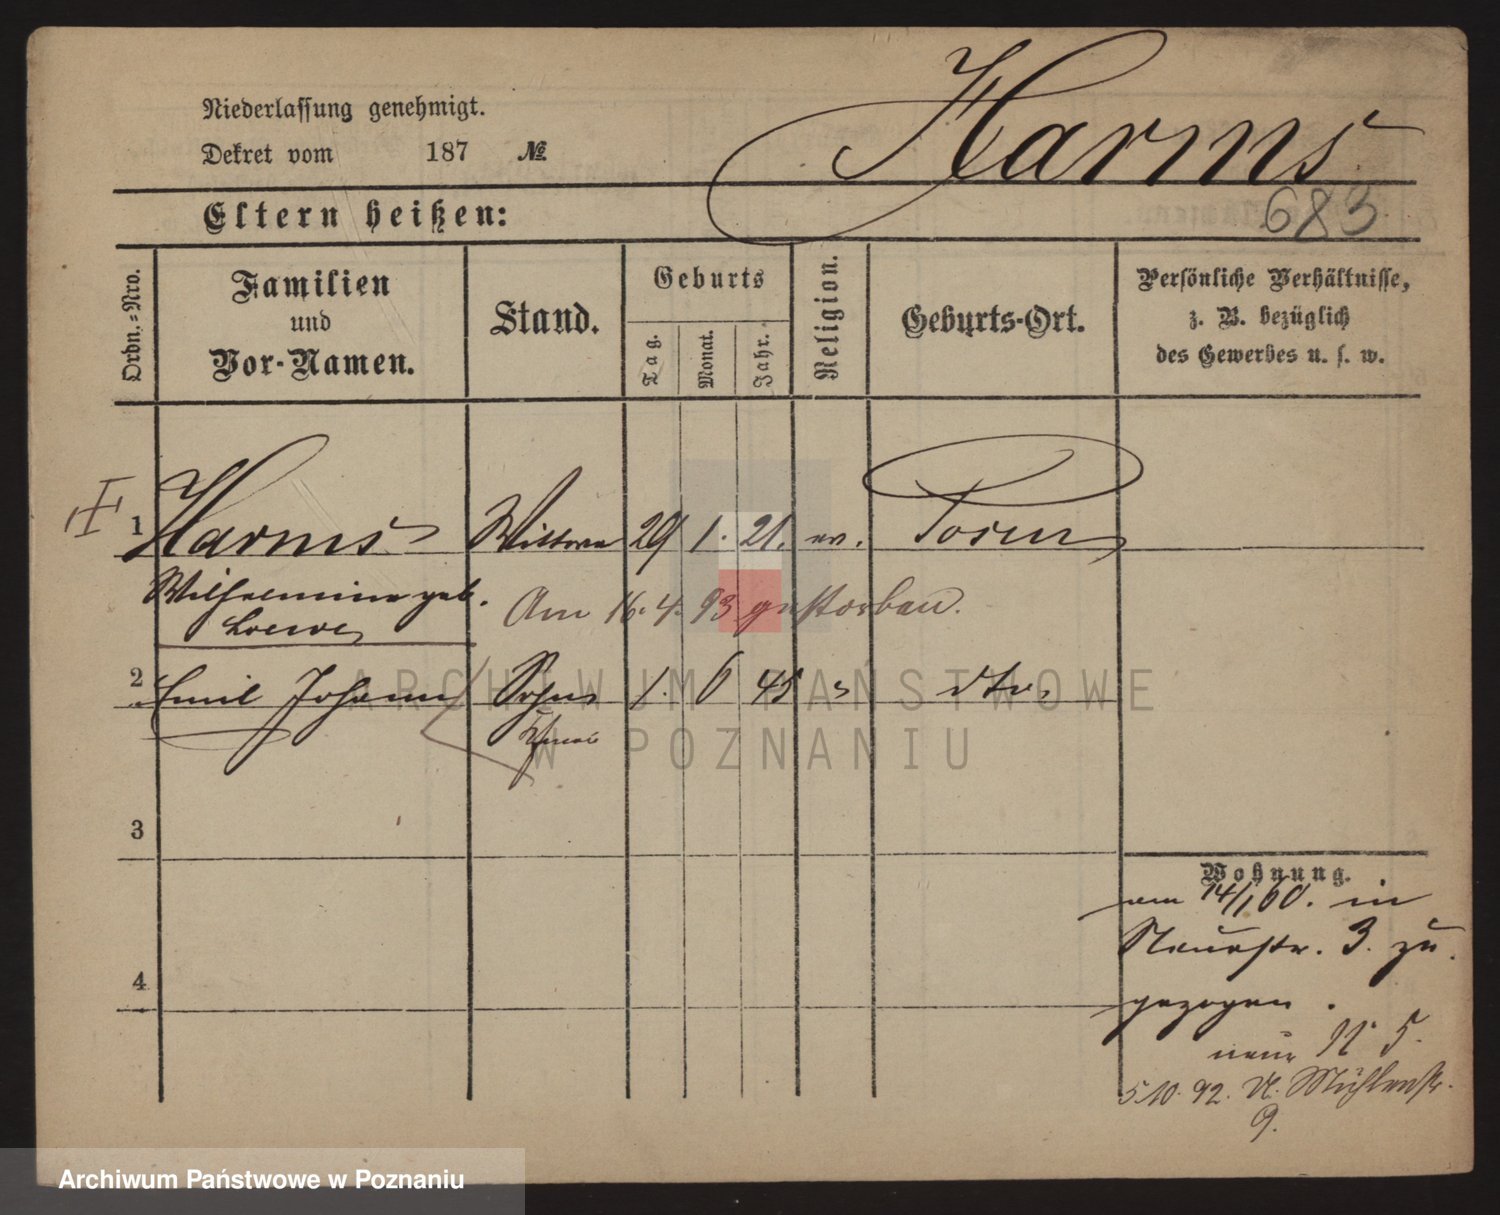 Harms
Niederlassung genehmigt.
Dekret vom 187 №
683
Eltern heißen:
Ordn.-Nro.
Familien
und
Vor-Namen.
Stand.
Geburts
Tag.
Monat.
Jahr.
Religion.
Geburts-Ort.
Persönliche Verhältnisse,
z. B. bezüglich
des Gewerbes u. s. w.
1 Harms Wittwe 29 1. 21. ev. Posen
Wilhelmine geb.
Loewe
Am 16. 4. 93 gestorben.
2 Emil Johann Sohn 1. 6 45 " dto.
3
4
Wohnung.
am 14/1 60. in
Neuestr. 3. zu
gezogen.
neue N 5.
5.10.92. U. Mühlenstr.
9.
ARCHIWUM PAŃSTWOWE
W POZNANIU
Archiwum Państwowe w Poznaniu